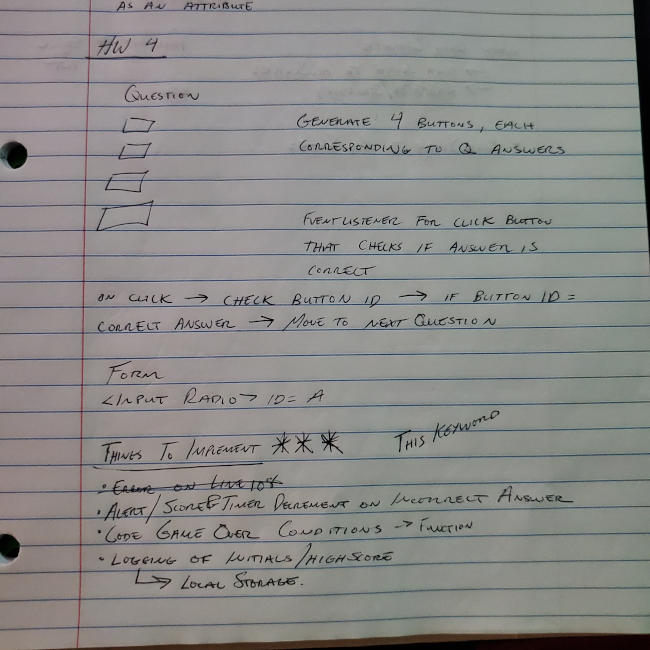 AS AN ATTRIBUTE
HW 4
QUESTION
GENERATE 4 BUTTONS, EACH
CORRESPONDING TO Q ANSWERS
EVENTLISTENER FOR CLICK BUTTON
THAT CHECKS IF ANSWER IS
CORRECT
ON CLICK → CHECK BUTTON ID → IF BUTTON ID =
CORRECT ANSWER → MOVE TO NEXT QUESTION
FORM
<INPUT RADIO> ID= A
THINGS TO IMPLEMENT ***
THIS KEYWORD
• ERROR ON LINE 108
• ALERT/SCORE & TIMER DECREMENT ON INCORRECT ANSWER
• CODE GAME OVER CONDITIONS → FUNCTION
• LOGGING OF INITIALS/HIGHSCORE
↳ LOCAL STORAGE.